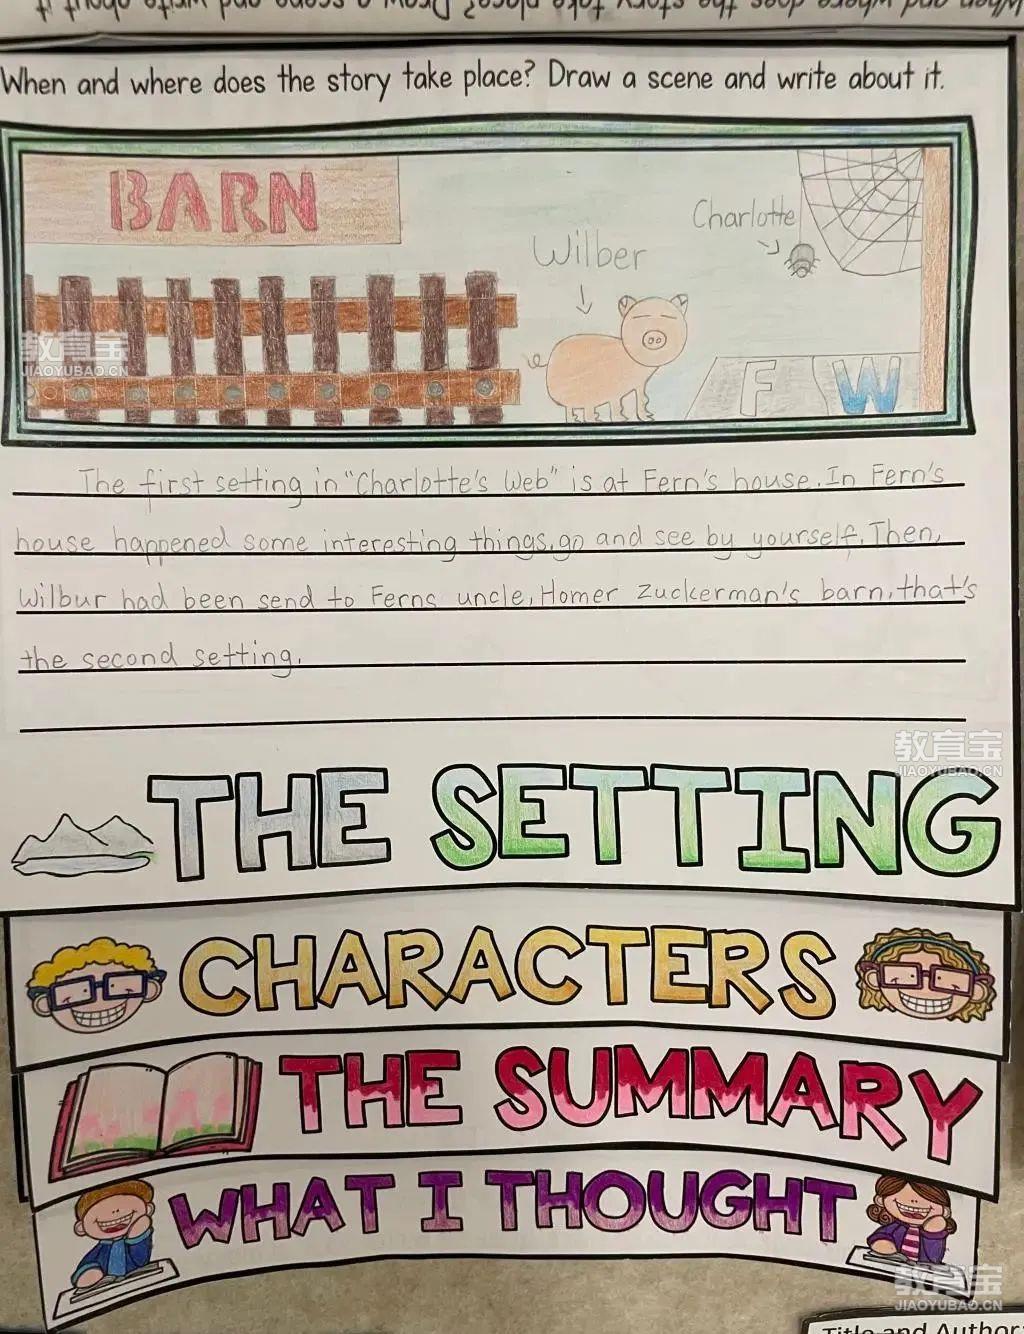 When and where does the story take place? Draw a scene and write about it.
When and where does the story take place? Draw a scene and write about it.
BARN
Charlotte
Wilber
教育宝
JIAOYUBAO.CN
F W
The first setting in "Charlotte's Web" is at Fern's house. In Fern's
house happened some interesting things, go and see by yourself. Then,
Wilbur had been send to Ferns uncle, Homer Zuckerman's barn, that's
the second setting.
教育宝
JIAOYUBAO.CN
THE SETTING
CHARACTERS
THE SUMMARY
WHAT I THOUGHT
教育宝
JIAOYUBAO.CN
Title and Author: